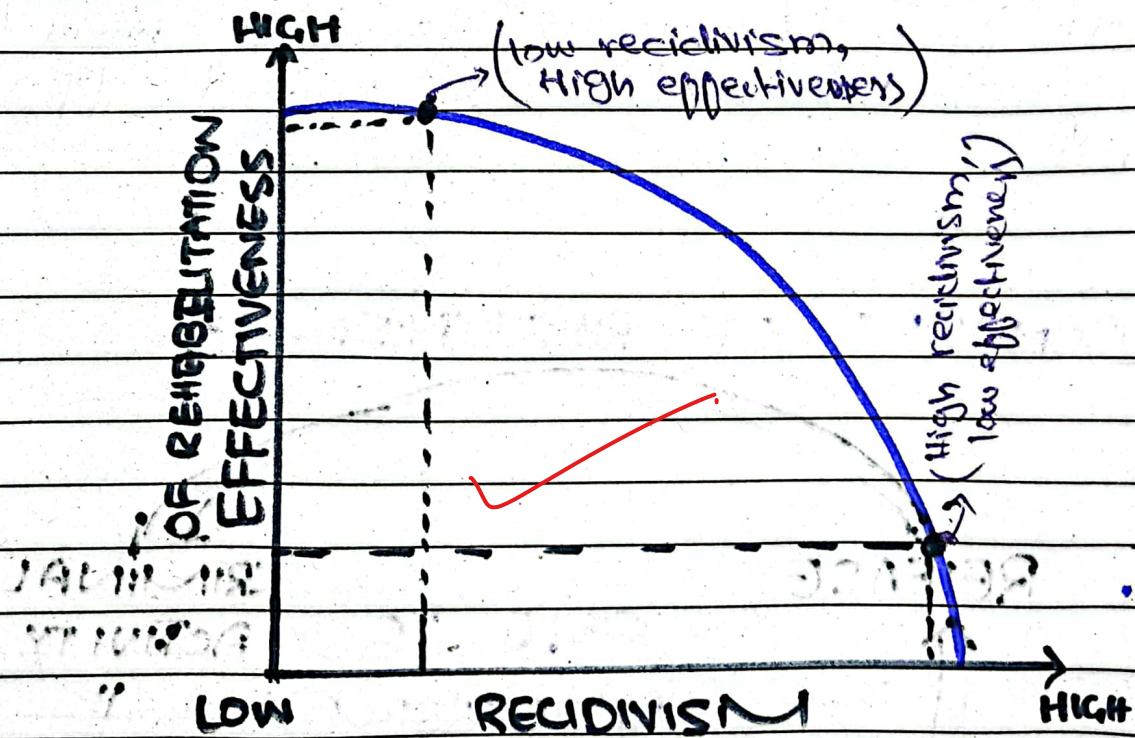 HIGH
(low recidivism,
High effectiveness)
EFFECTIVENESS
OF REHABILITATION
(High recidivism,
low effectiveness)
LOW
RECIDIVISM
HIGH